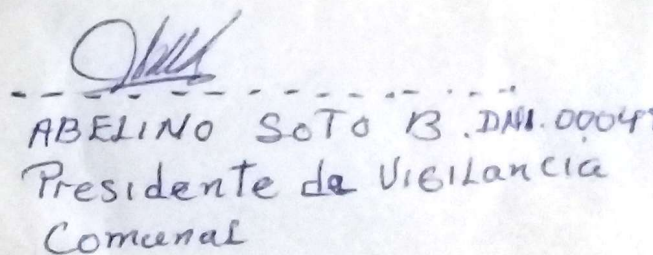 ABELINO SOTO B. DNI. 0004
Presidente de Vigilancia
Comunal